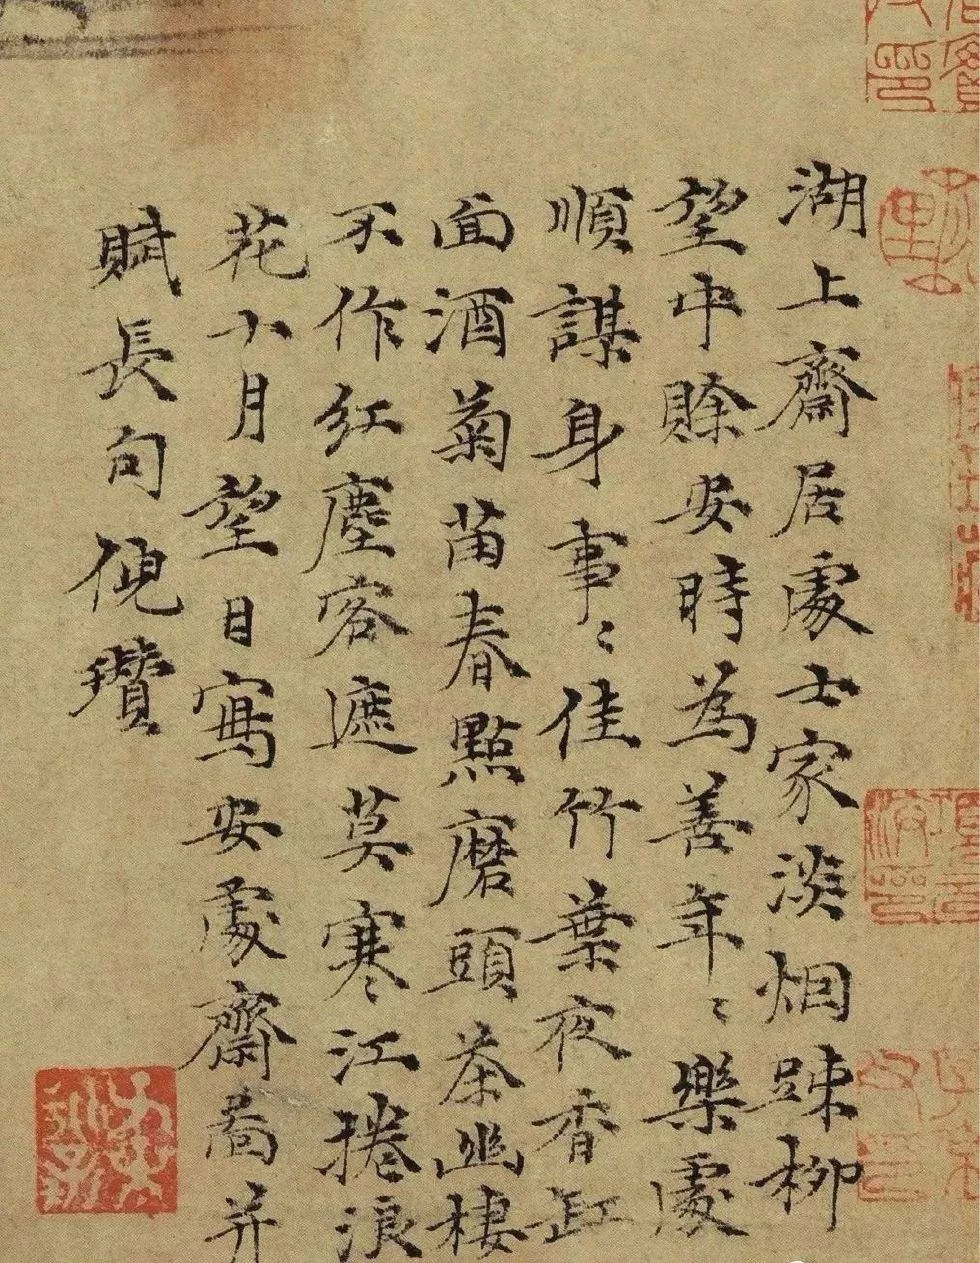 湖上齋居處士家淡烟踈柳
望中賒安時為善年〻樂處
順謀身事〻佳竹葉夜香缸
面酒菊苗春點磨頭茶幽棲
不作紅塵客遮莫寒江捲浪
花十月望日寫安處齋啚并
賦長句倪瓚